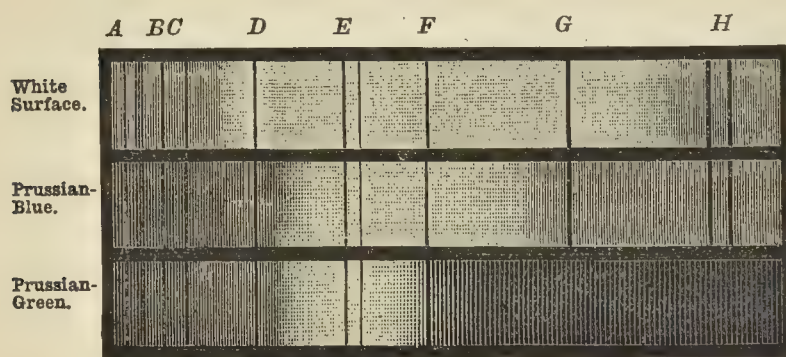 A B C D E F G H
White
Surface.
Prussian-
Blue.
Prussian-
Green.